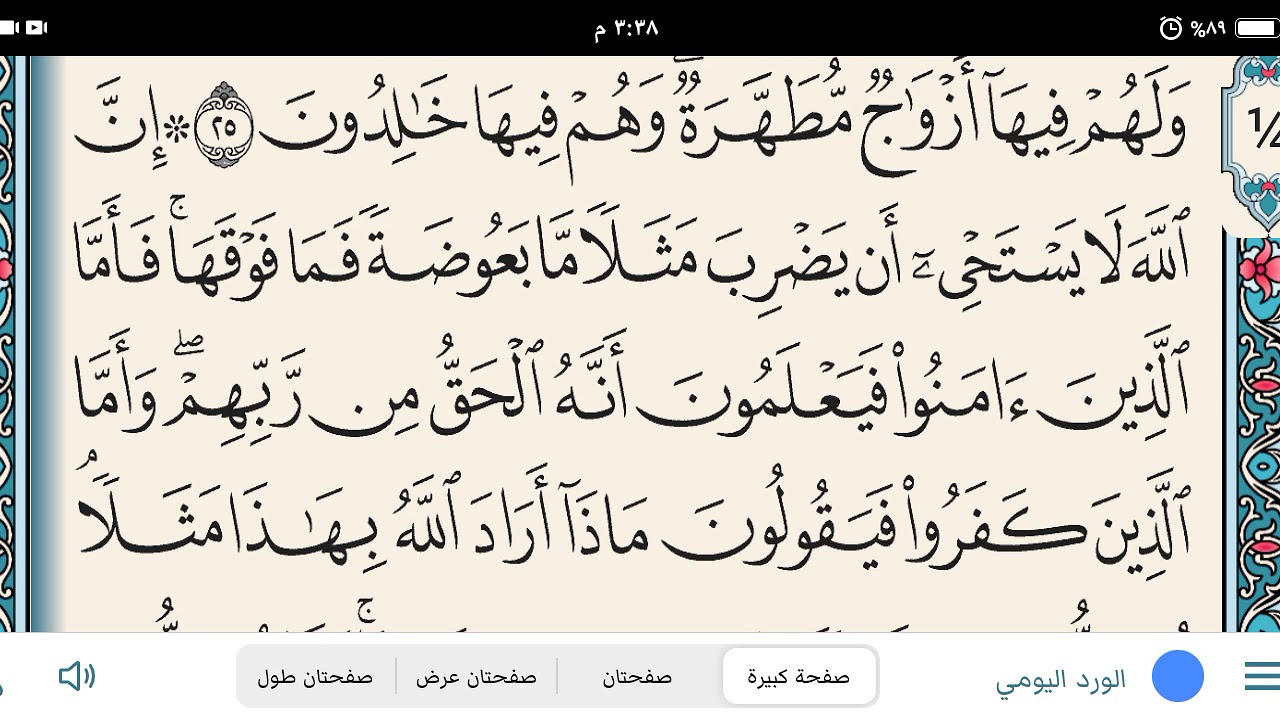 ٣:٣٨ م
%٨٩
وَلَهُمْ فِيهَآ أَزْوَٰجٌ مُّطَهَّرَةٌ ۖ وَهُمْ فِيهَا خَـٰلِدُونَ ٢٥ ۞ إِنَّ
½
ٱللَّهَ لَا يَسْتَحْىِۦٓ أَن يَضْرِبَ مَثَلًا مَّا بَعُوضَةً فَمَا فَوْقَهَا ۚ فَأَمَّا
ٱلَّذِينَ ءَامَنُوا۟ فَيَعْلَمُونَ أَنَّهُ ٱلْحَقُّ مِن رَّبِّهِمْ ۖ وَأَمَّا
ٱلَّذِينَ كَفَرُوا۟ فَيَقُولُونَ مَاذَآ أَرَادَ ٱللَّهُ بِهَـٰذَا مَثَلًا ۘ
الورد اليومي
صفحة كبيرة
صفحتان
صفحتان عرض
صفحتان طول